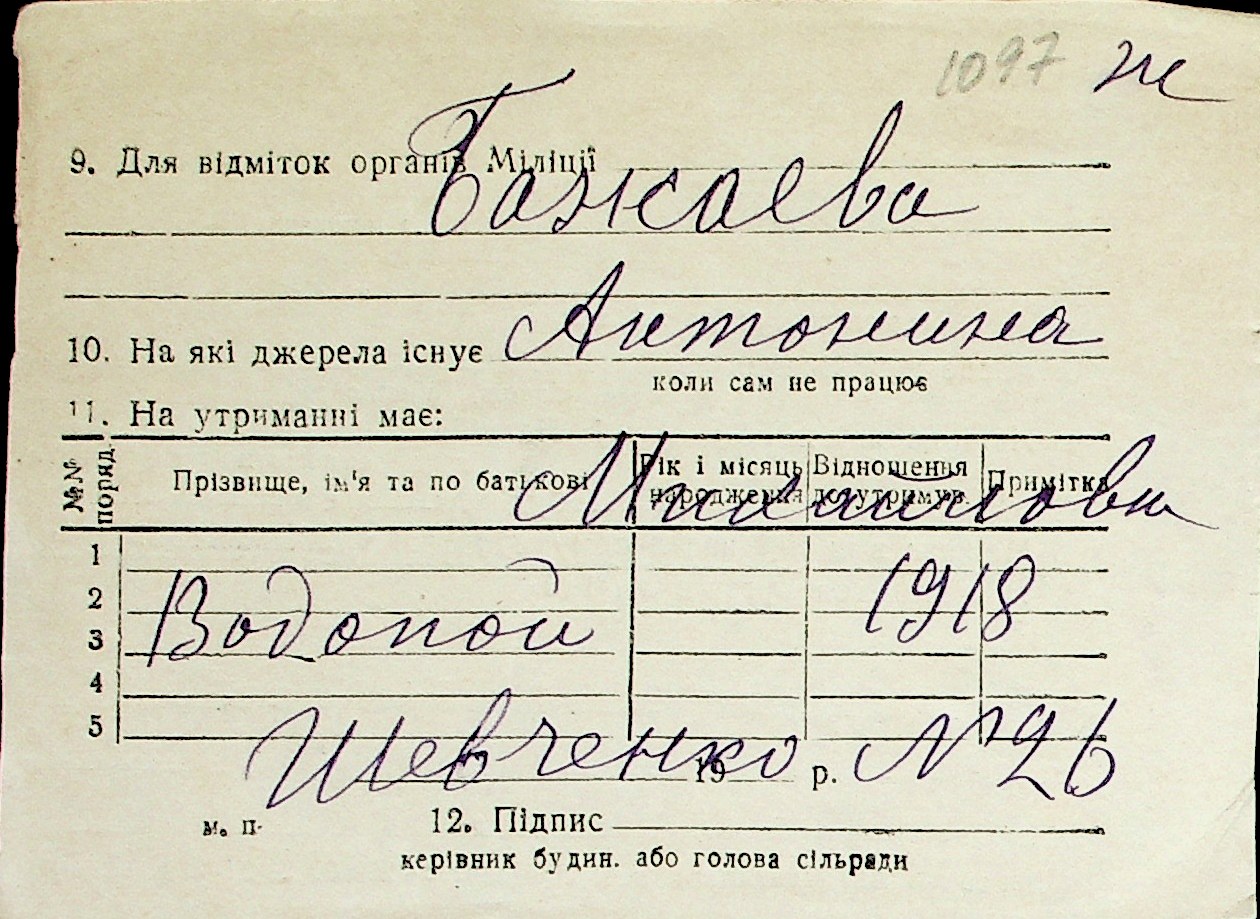 1097 ж
Бажаева
9. Для відміток органів Міліції
Антонина
10. На які джерела існує
коли сам не працює
11. На утриманні має:
№№ поряд. Прізвище, ім'я та по батькові Рік і місяць народження Відношення до утримув. Примітка
Михайловна
1
2
3
4
5
Водопой 1918
Шевченко № 26
19 р.
м. п. 12. Підпис
керівник будин. або голова сільради